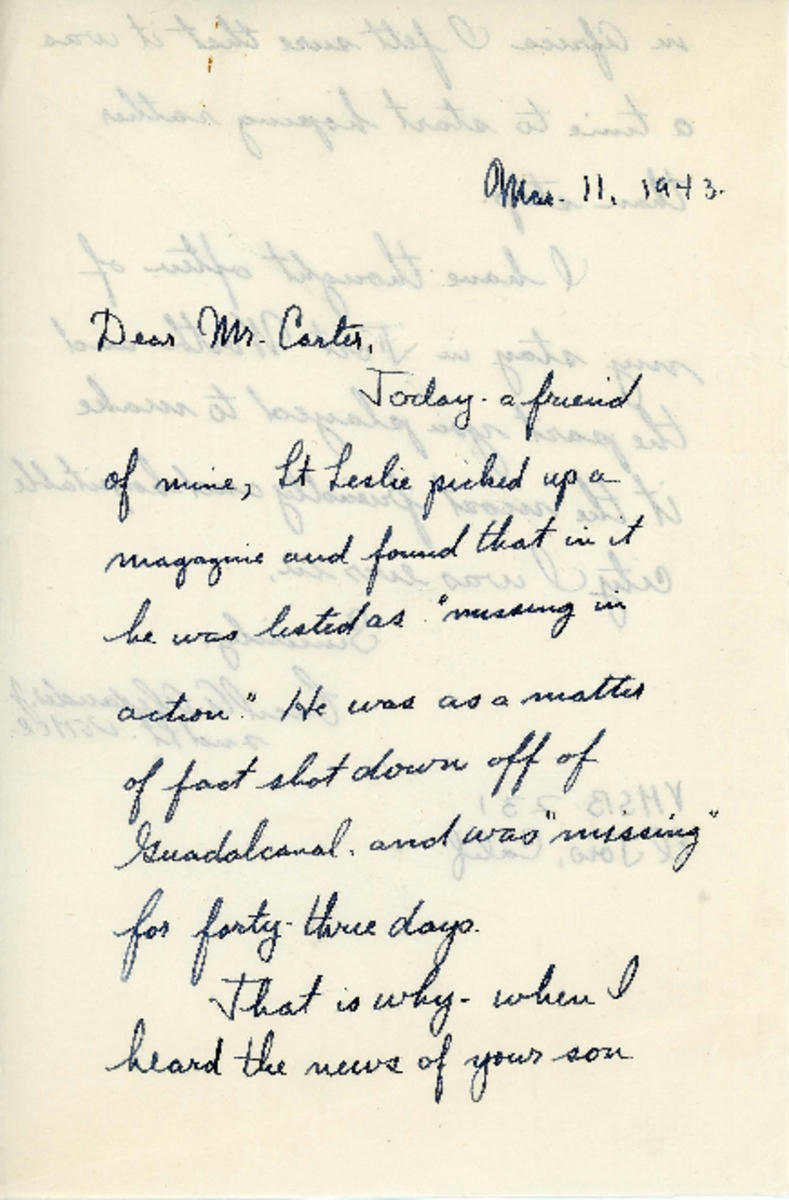 Mar. 11, 1943.
Dear Mr. Carter,
Today - a friend
of mine, Lt Leslie picked up a
magazine and found that in it
he was listed as "missing in
action." He was as a matter
of fact shot down off of
Guadalcanal. and was "missing"
for forty-three days.
That is why - when I
heard the news of your son